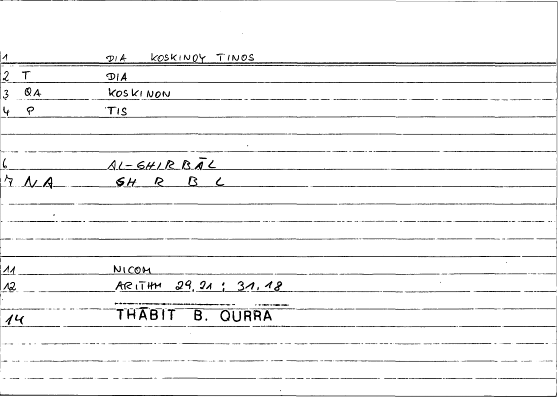 1 DIA KOSKINOY TINOS
2 T DIA
3 QA KOSKINON
4 P TIS
6 AL-GHIRBĀL
7 NA GH R B L
11 NICOM
12 ARITHM 29,21 : 31,18
14 THĀBIT B. QURRA